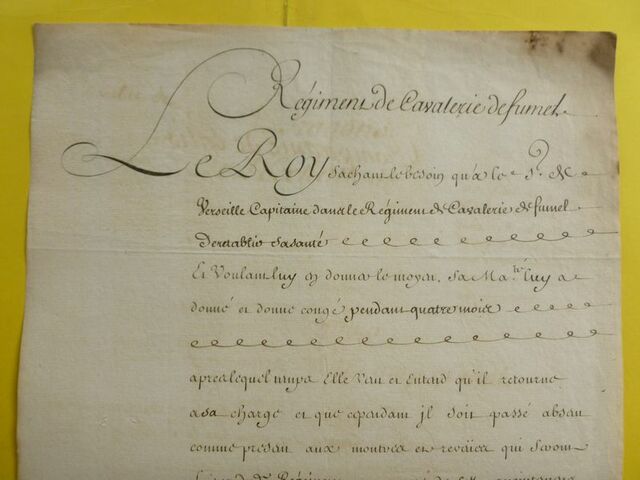 Régiment de Cavalerie de fumel.
Le Roy sachant le besoin qu'a le Sr. de
Verseille Capitaine dans le Régiment de Cavalerie de fumel
de retablir sa santé
Et Voulant luy en donner le moyen, sa Maté. luy a
donné et donne congé pendant quatre mois
apres lequel temps Elle veut et Entend qu'il retourne
a sa charge et que cependant jl soit passé absent
comme present aux montres et reveües qui seront